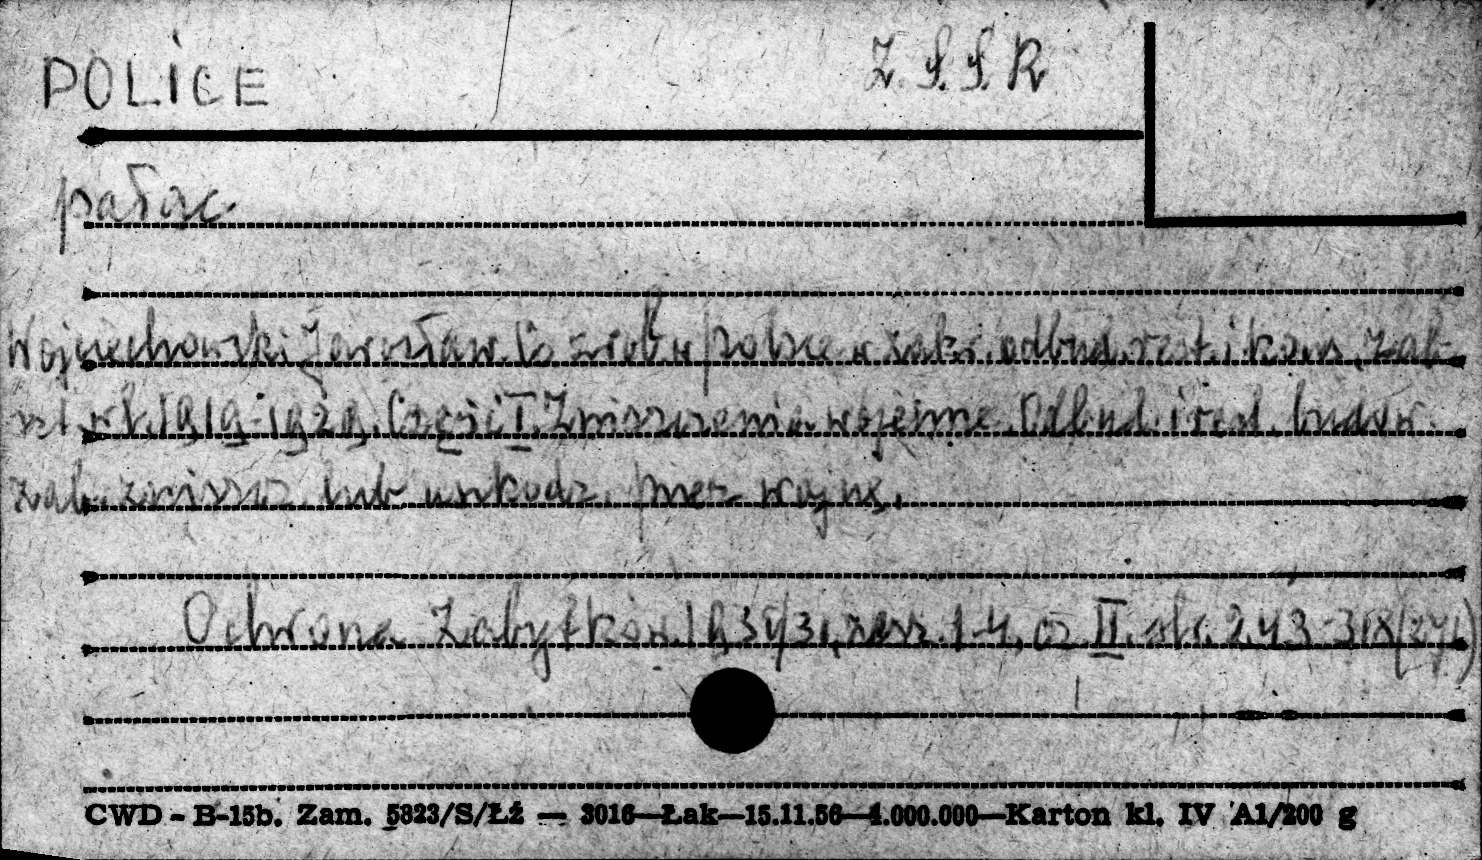 POLICE Z.S.S.R
pałac
Wojciechowski Jarosław, Co zrob. w Polsce w zakr. odbud. rest. i kons. zab.
szt. w l. 1919-1929. Część I. Zniszczenia wojenne. Odbud. i rest. budow.
zab. zniszcz. lub uszkodz. przez wojnę.
Ochrona Zabytków 1930/31, zesz. 1-4, cz. II. str. 243-318 (271)
CWD - B-15b. Zam. 5823/S/Łź — 3016—Łak—15.11.56—4.000.000—Karton kl. IV A1/200 g